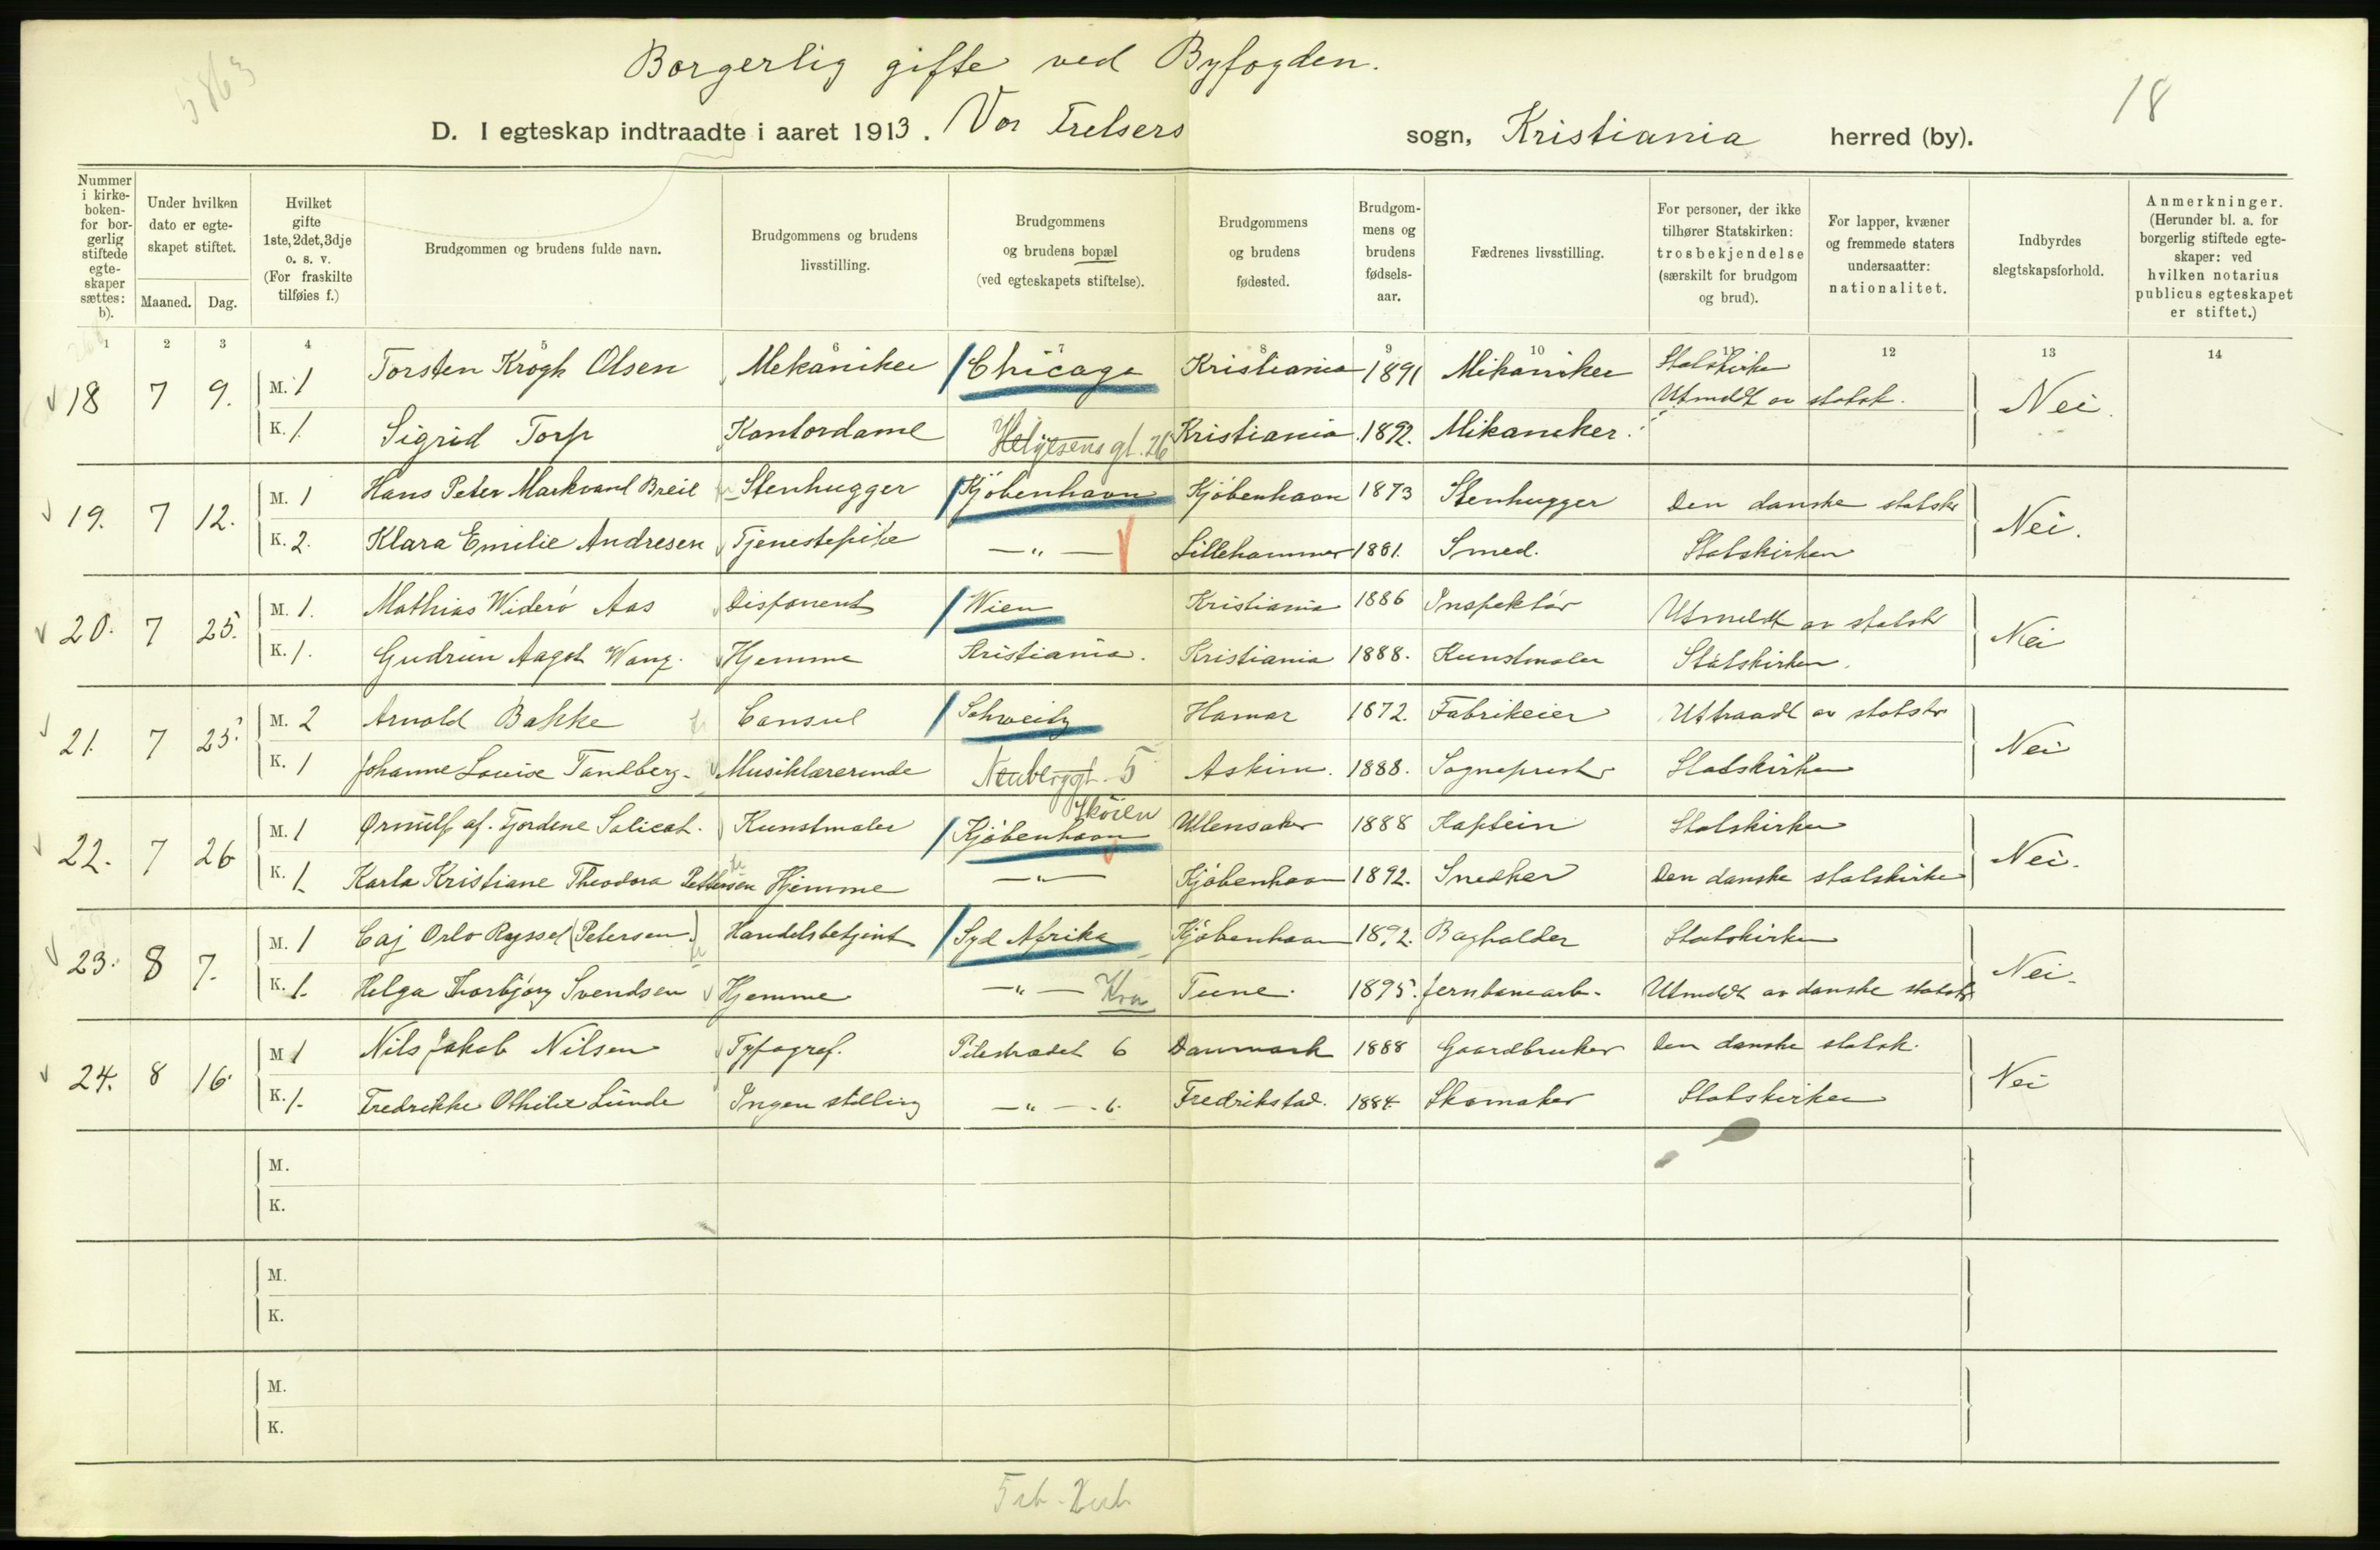 5863
Borgerlig gifte ved Byfogden.
18
D. I egteskap indtraadte i aaret 1913. Vor Frelsers sogn, Kristiania herred (by).
Nummer i kirke- boken- for bor- gerlig stiftede egte- skaper sættes: b).
Under hvilken dato er egte- skapet stiftet.
Maaned. Dag.
Hvilket gifte 1ste, 2det, 3dje o. s. v. (For fraskilte tilføies f.)
Brudgommen og brudens fulde navn.
Brudgommens og brudens livsstilling.
Brudgommens og brudens bopæl (ved egteskapets stiftelse).
Brudgommens og brudens fødested.
Brudgom- mens og brudens fødsels- aar.
Fædrenes livsstilling.
For personer, der ikke tilhører Statskirken: trosbekjendelse (særskilt for brudgom og brud).
For lapper, kvæner og fremmede staters undersaatter: nationalitet.
Indbyrdes slegtskapsforhold.
Anmerkninger. (Herunder bl. a. for borgerlig stiftede egte- skaper: ved hvilken notarius publicus egteskapet er stiftet.)
1 2 3 4 5 6 7 8 9 10 11 12 13 14
18 7 9. M. 1 Torsten Krogh Olsen Mekaniker Chicago Kristiania 1891 Mekaniker Statskirke Utmeldt av statsk. Nei.
K. 1. Sigrid Torp Kontordame Helgesens gt. 26 Kristiania 1892. Mekaniker.
19. 7 12. M. 1 Hans Peter Markvard Breil Stenhugger Kjöbenhavn Kjöbenhavn 1873 Stenhugger Den danske statsk Nei.
K. 2. Klara Emilie Andresen Tjenestepike —"— Lillehammer 1881. Smed. Statskirken
20. 7 25. M. 1. Mathias Widerö Aas Disponent Wien Kristiania 1886 Inspektör Utmeldt av statsk Nei
K. 1. Gudrun Aagot Wang. Hjemme Kristiania. Kristiania 1888. Kunstmaler Statskirken.
21. 7 25. M. 2 Arnold Bakke Consul Schweitz Hamar 1872. Fabrikeier Uttraadt av statsk Nei
K. 1 Johanne Louise Tandberg. Musiklærerinde Neuberggt. 5 Askim. 1888. Sogneprest Statskirken
Skøien
22. 7 26 M. 1 Ørnulf af. Fjordene Salicat. Kunstmaler Kjöbenhavn Ullensaker 1888 Kaptein Statskirken Nei.
K. 1. Karla Kristiane Theodora Pettersen Hjemme —"— Kjöbenhavn 1892. Snedker Den danske statskirke
23. 8 7. M. 1 Caj Orlo Ryssel (Petersen.) Handelsbetjent Syd Afrika Kjöbenhavn 1892. Bagholder Statskirken Nei.
K. 1. Helga Thorbjörg Svendsen Hjemme —"— Kra Tune. 1895. Jernbanearb. Utmeldt av danske statsk
24. 8 16. M 1 Nils Jakob Nilsen Typograf. Pilestrædet 6 Danmark 1888 Gaardbruker Den danske statsk. Nei
K. 1. Fredrikke Othilie Lunde Ingen stilling —"— 6. Fredrikstad. 1884. Skomaker Statskirken
M.
K.
M.
K.
M.
K.